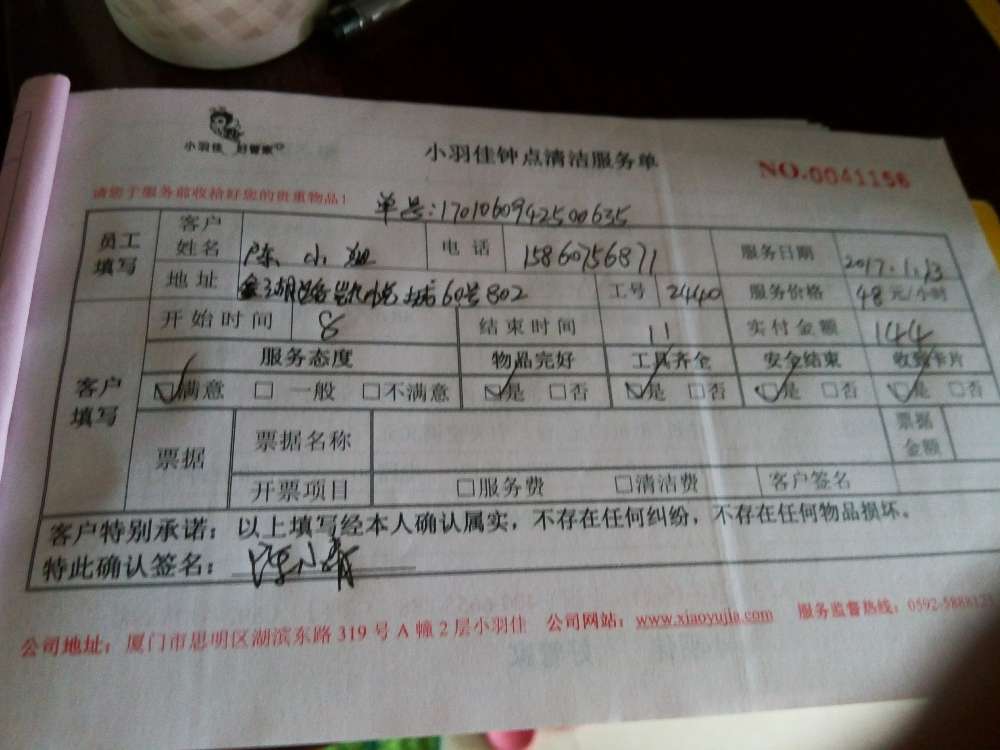 小羽佳 好管家
小羽佳钟点清洁服务单
NO.0041156
请您于服务前收拾好您的贵重物品！
单号:1701060942500635
员工填写 客户姓名 陈小姐 电话 15860756871 服务日期 2017.1.13
地址 金湖路 60号802 工号 2440 服务价格 48元/小时
客户填写 开始时间 8 结束时间 11 实付金额 144
服务态度 物品完好 工具齐全 安全结束 收到卡片
☑满意 □一般 □不满意 ☑是 □否 ☑是 □否 ☑是 □否 ☑是 □否
票据 票据名称 票据金额
开票项目 □服务费 □清洁费 客户签名
客户特别承诺：以上填写经本人确认属实，不存在任何纠纷，不存在任何物品损坏。
特此确认签名：陈小青
公司地址：厦门市思明区湖滨东路 319 号 A 幢 2 层小羽佳 公司网站：www.xiaoyujia.com 服务监督热线：0592-5888